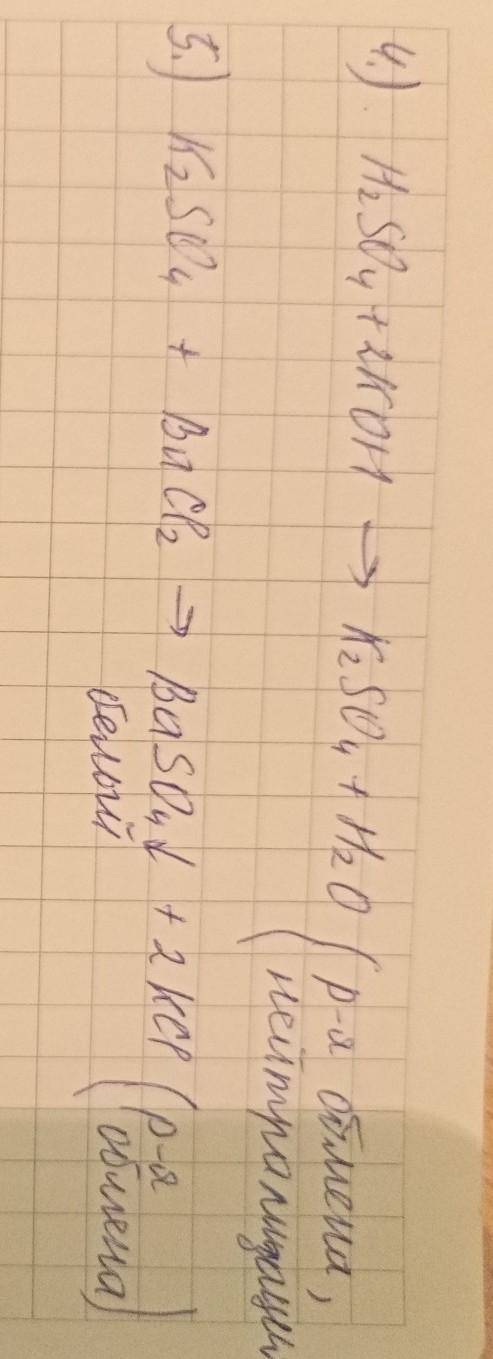 4.) H₂SO₄ + 2KOH → K₂SO₄ + H₂O (р-я обмена,
нейтрализации
5.) K₂SO₄ + BaCl₂ → BaSO₄↓ + 2KCl (р-я
белый обмена)